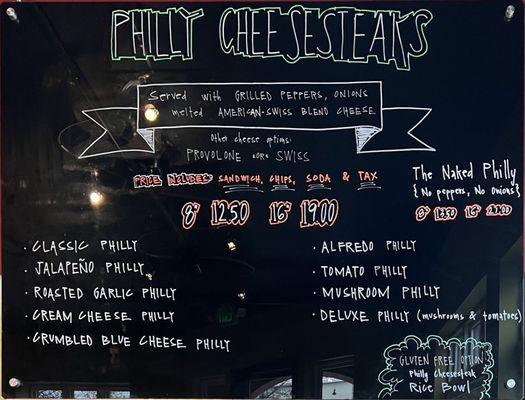 PHILLY CHEESESTEAKS
Served with GRILLED PEPPERS, ONIONS
melted AMERICAN-SWISS BLEND CHEESE
Other cheese options:
PROVOLONE OR SWISS
PRICE INCLUDES SANDWICH, CHIPS, SODA & TAX
8" 12.50 16" 19.00
The Naked Philly
{No peppers, No onions}
8" 16"
· CLASSIC PHILLY
· JALAPEÑO PHILLY
· ROASTED GARLIC PHILLY
· CREAM CHEESE PHILLY
· CRUMBLED BLUE CHEESE PHILLY
· ALFREDO PHILLY
· TOMATO PHILLY
· MUSHROOM PHILLY
· DELUXE PHILLY (mushrooms & tomatoes)
GLUTEN FREE OPTION
Philly Cheesesteak
Rice Bowl